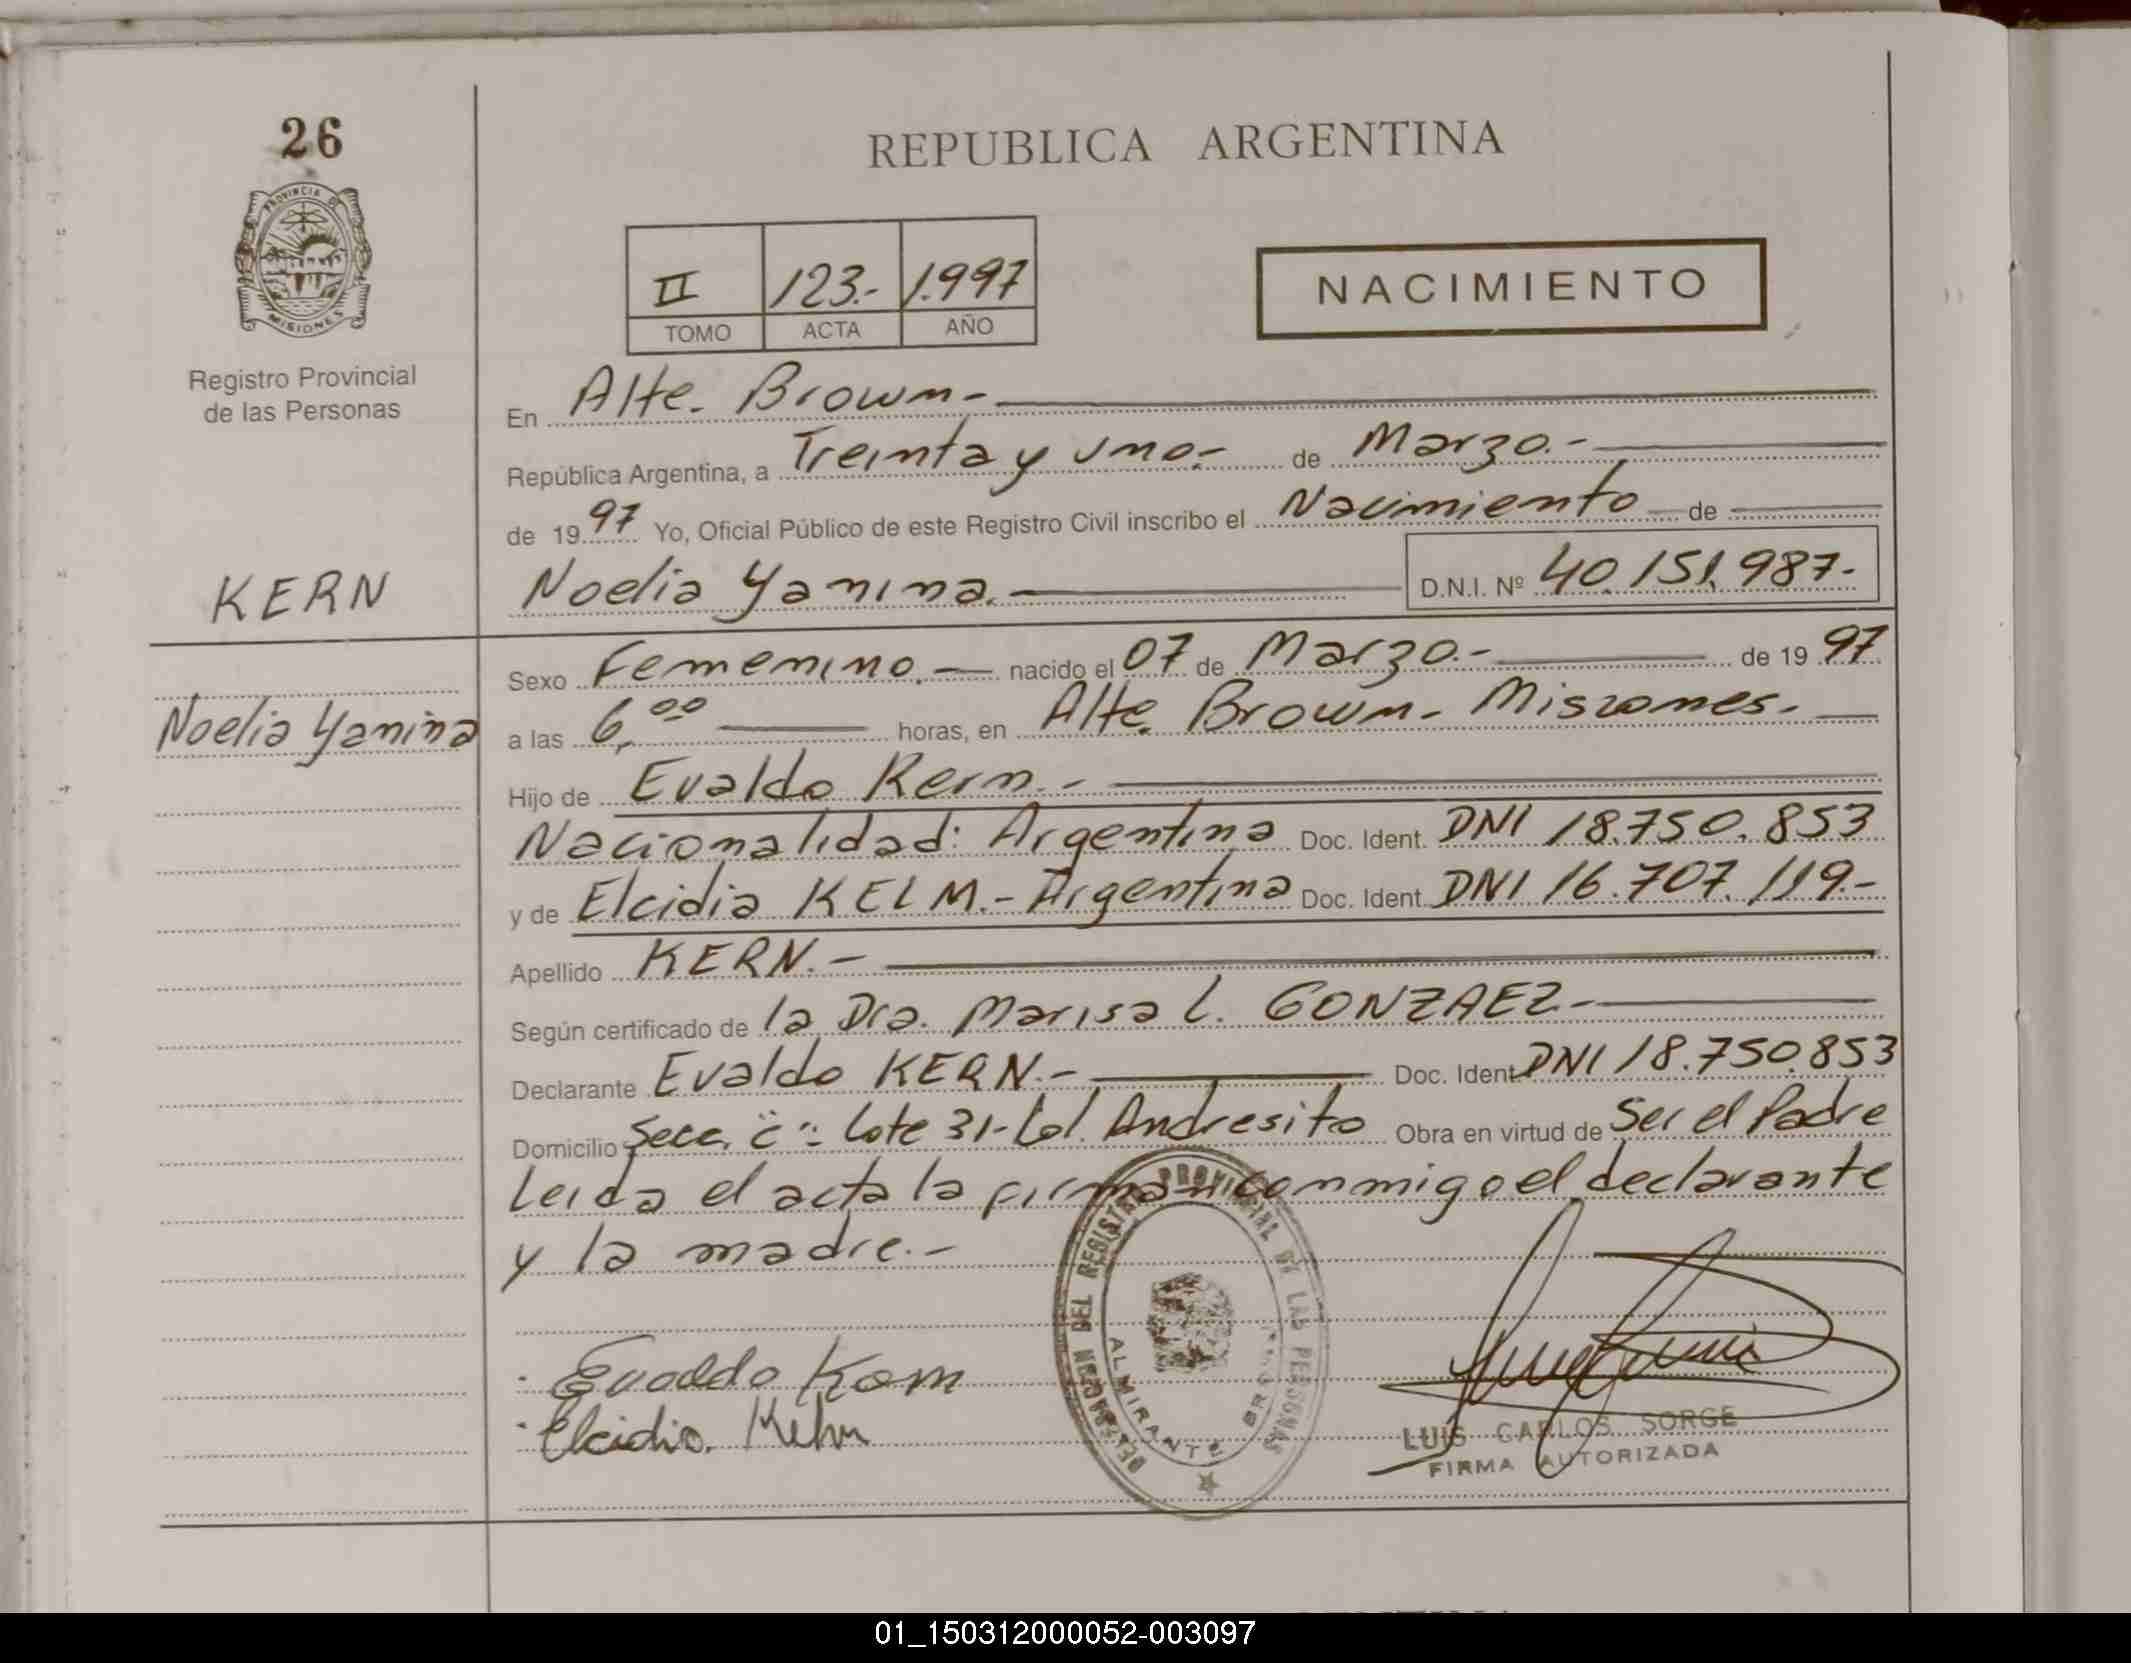 26
REPUBLICA ARGENTINA
PROVINCIA DE
MISIONES
Registro Provincial
de las Personas
II 123.- 1.997
TOMO ACTA AÑO
NACIMIENTO
En Alte. Brown.-
República Argentina, a Treinta y uno.- de Marzo.-
de 1997 Yo, Oficial Público de este Registro Civil inscribo el Nacimiento de
KERN
Noelia Yanina.
D.N.I. Nº 40.151.987-
Sexo Femenino.- nacido el 07 de Marzo.- de 1997
Noelia Yanina
a las 6,00 horas, en Alte. Brown.- Misiones.-
Hijo de Evaldo Kern.-
Nacionalidad: Argentina Doc. Ident. DNI 18.750.853
y de Elcidia KELM.- Argentina Doc. Ident. DNI 16.707.119.-
Apellido KERN.-
Según certificado de la Dra. Marisa L. GONZAEZ-
Declarante Evaldo KERN.- Doc. Ident DNI 18.750.853
Domicilio Secc. "C" Lote 31-Col. Andresito Obra en virtud de Ser el Padre
Leida el acta la firman conmigo el declarante
y la madre.-
DEL REGISTRO PROVINCIAL DE LAS PERSONAS
ALMIRANTE BRO
Evaldo Kern
Elcidia. Kelm
LUIS CARLOS SORGE
FIRMA AUTORIZADA
01_150312000052-003097